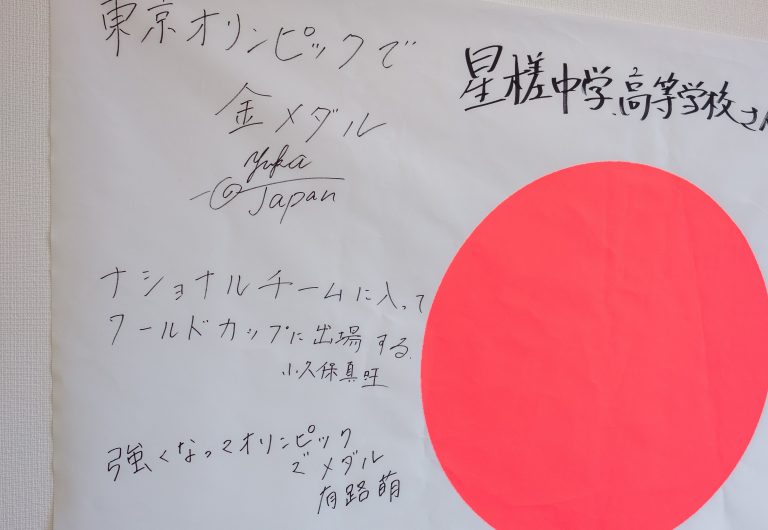 東京オリンピックで
金メダル
Yuka
Japan
星槎中学、高等学校さん
ナショナルチームに入って
ワールドカップに出場する
小久保真旺
強くなってオリンピック
でメダル
有路萌